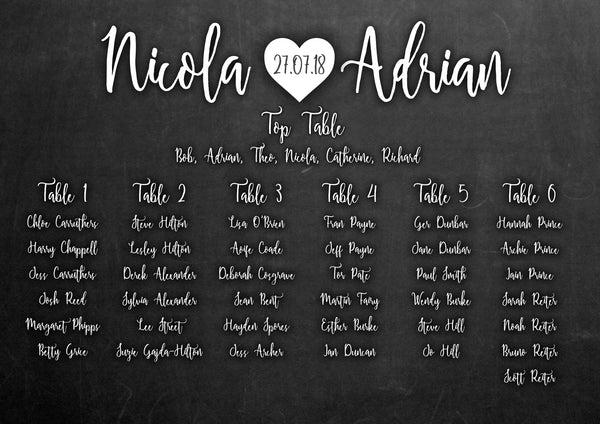 Nicola 27.07.18 Adrian
Top Table
Bob, Adrian, Theo, Nicola, Catherine, Richard
Table 1 Table 2 Table 3 Table 4 Table 5 Table 6
Chloe Carruthers Steve Hilton Lisa O'Brien Fran Payne Ger Dunbar Hannah Prince
Harry Chappell Lesley Hilton Aoife Coade Jeff Payne Jane Dunbar Archie Prince
Jess Carruthers Derek Alexander Deborah Cosgrave Tor Pate Paul Smith Iain Prince
Josh Reed Sylvia Alexander Jean Bent Martin Fary Wendy Burke Sarah Reiter
Margaret Phipps Lee Street Hayden Spores Esther Burke Steve Hill Noah Reiter
Betty Grice Suzie Gajda-Hilton Jess Archer Ian Duncan Jo Hill Bruno Reiter
Scott Reiter